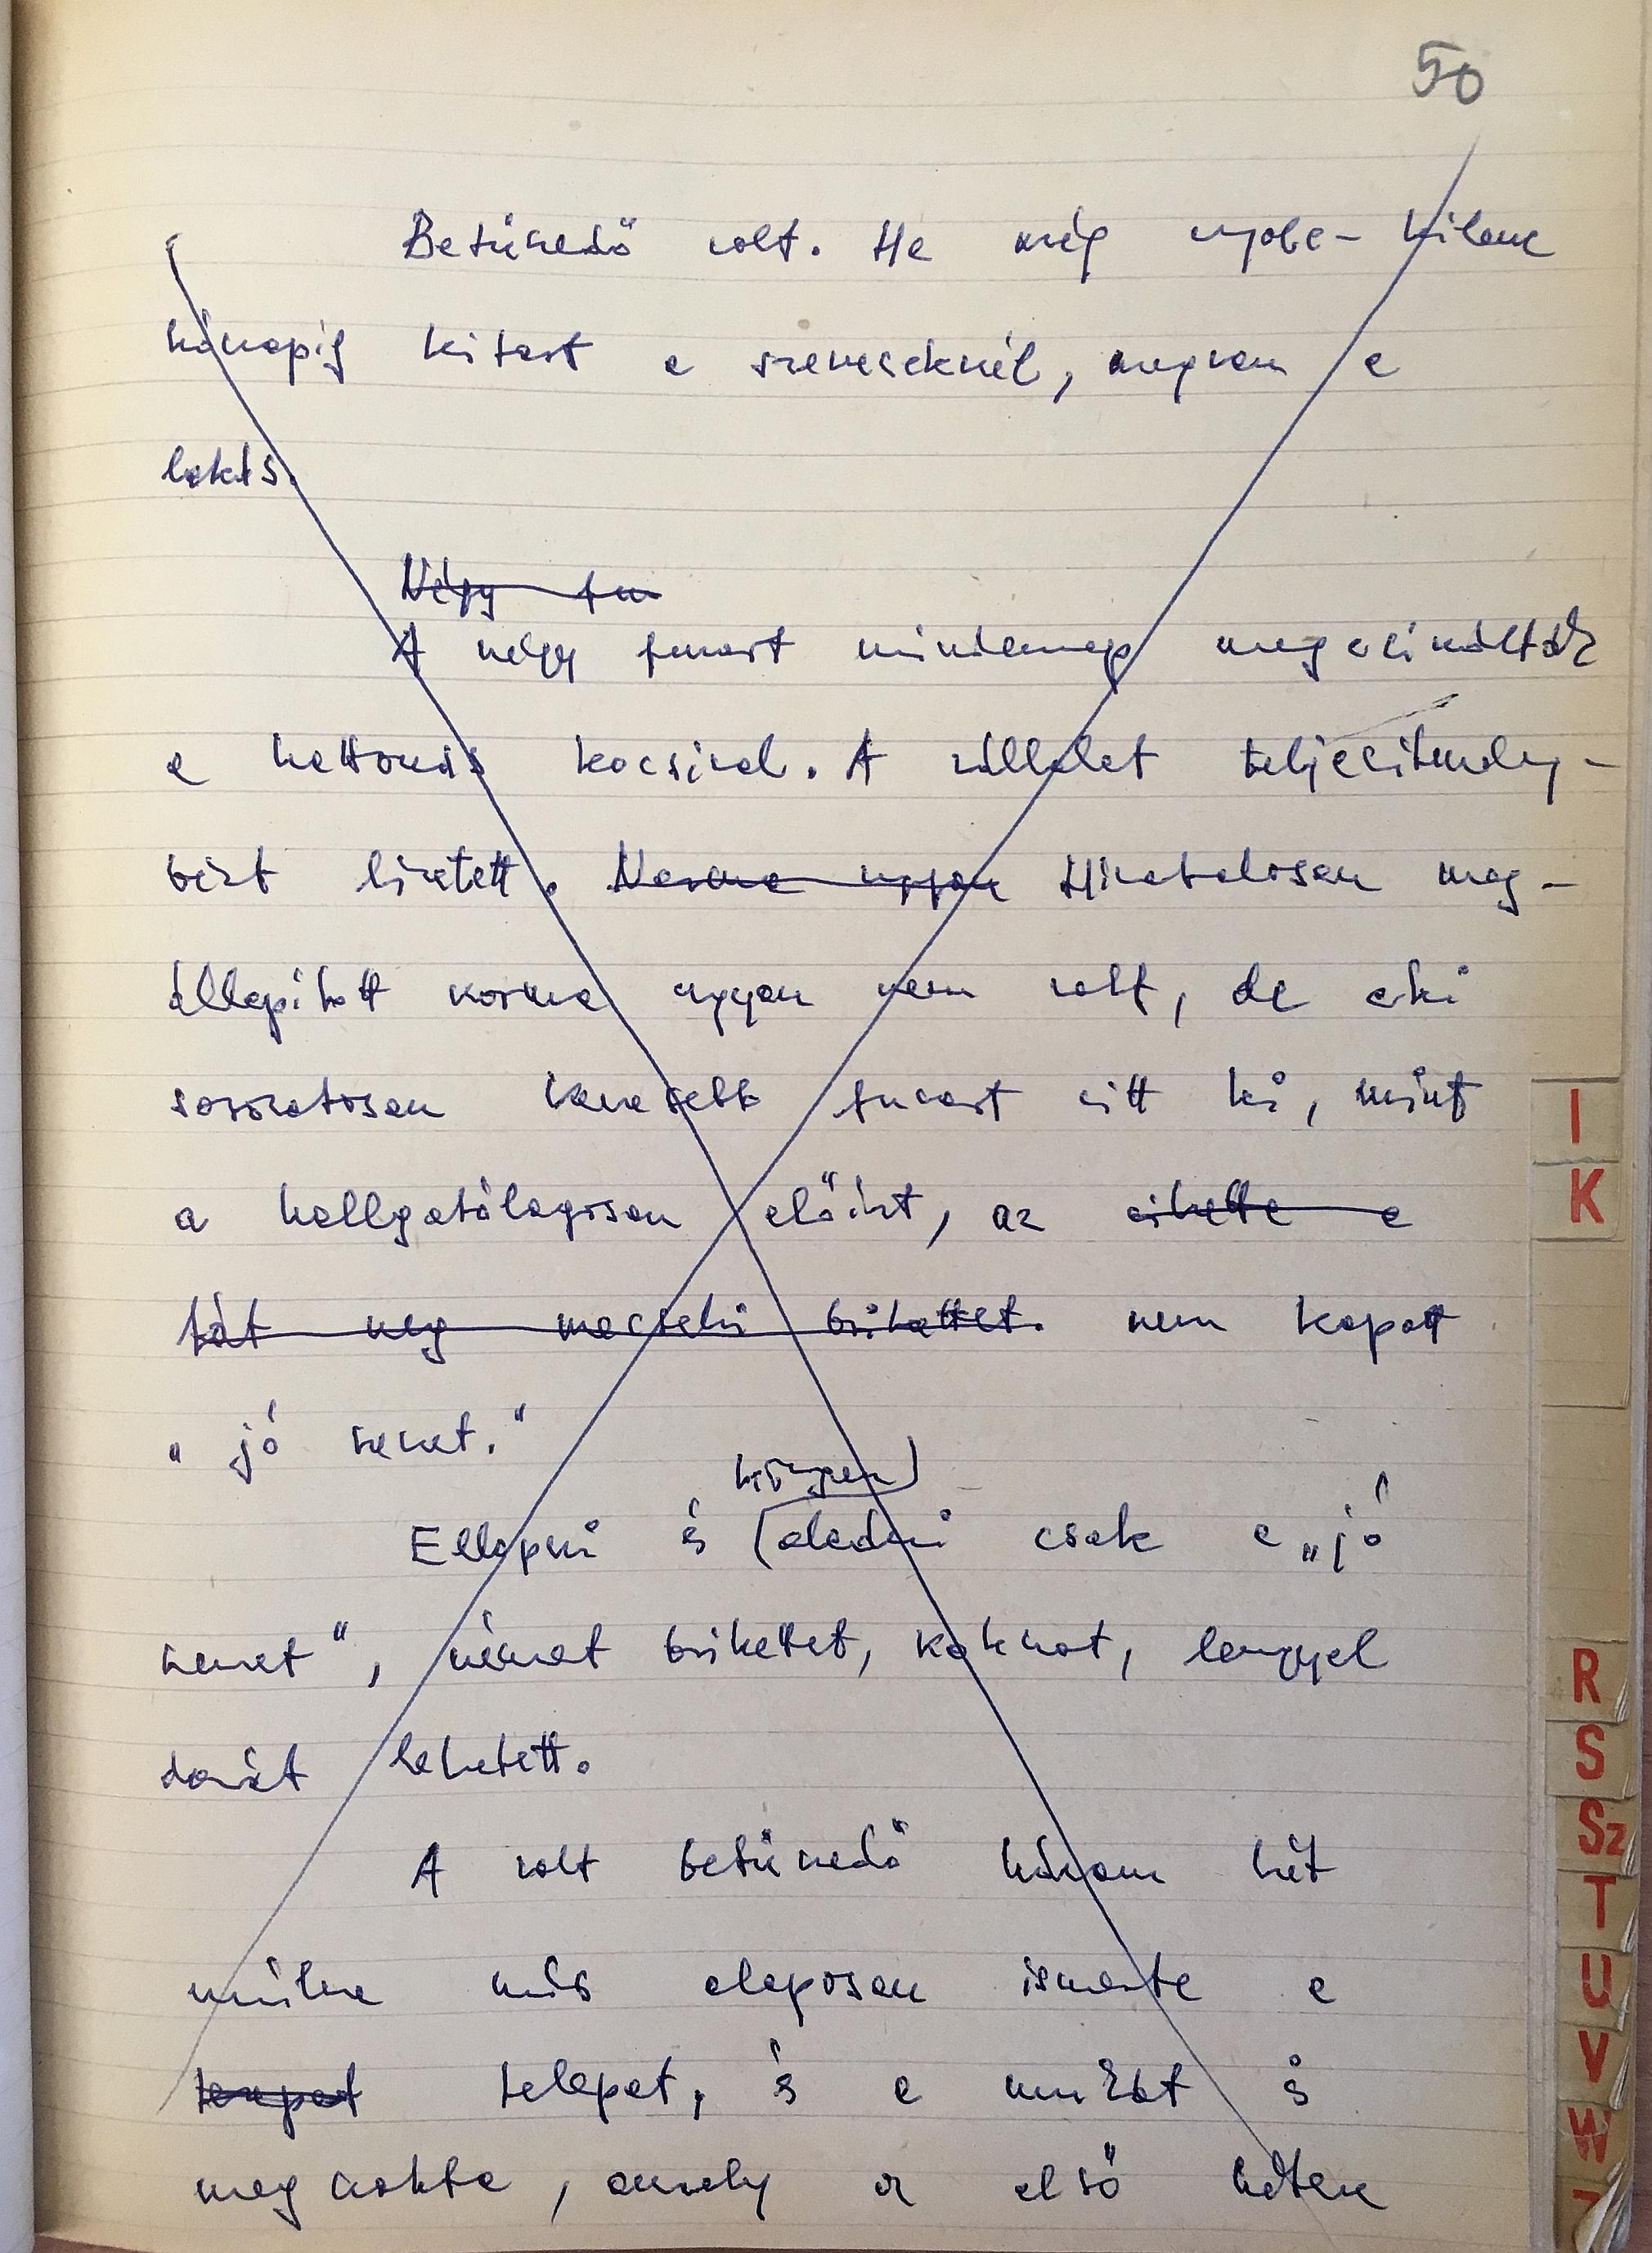 50
Betűszedő volt. Ha még nyolc-kilenc
hónapig kitart a szeneseknél, megvan a
lakás.
Négy fu
A négy fuvart mindennap megcsinálták
a hattonás kocsival. A vállalat teljesítmény-
bért fizetett. Norma ugyan Hivatalosan meg-
állapított norma ugyan nem volt, de aki
sorozatosan kevesebb fuvart vitt ki, mint
a hallgatólagosan előírt, az vihette a
nem kapott
"jó szenet."
könnyen
Ellopni és eladni csak a "jó
szenet", német brikettet, kokszot, lengyel
darát lehetett.
A volt betűszedő három hét
múlva már alaposan ismerte a
terepet telepet, és a munkát is
megszokta, amely az első héten
I
K
R
S
Sz
T
U
V
W
Z